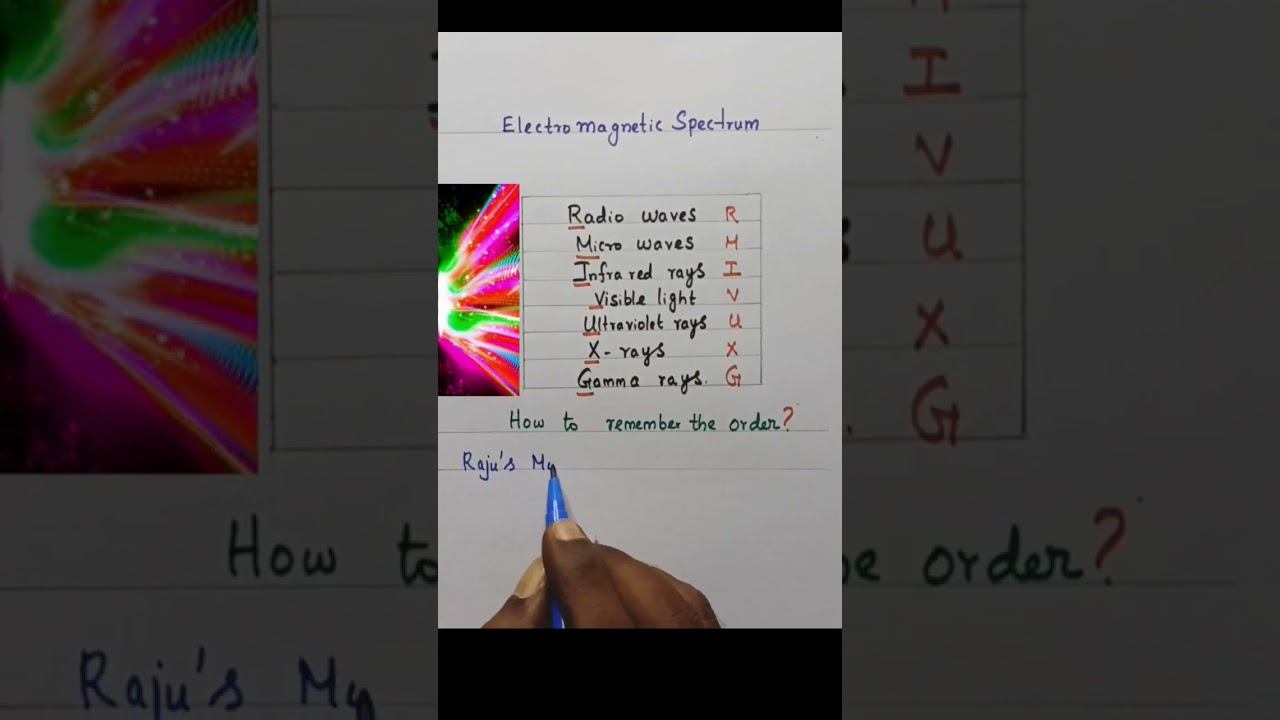 Electromagnetic Spectrum
Radio waves R
Micro waves M
Infrared rays I
Visible light V
Ultraviolet rays U
X-rays X
Gamma rays. G
How to remember the order?
Raju's My